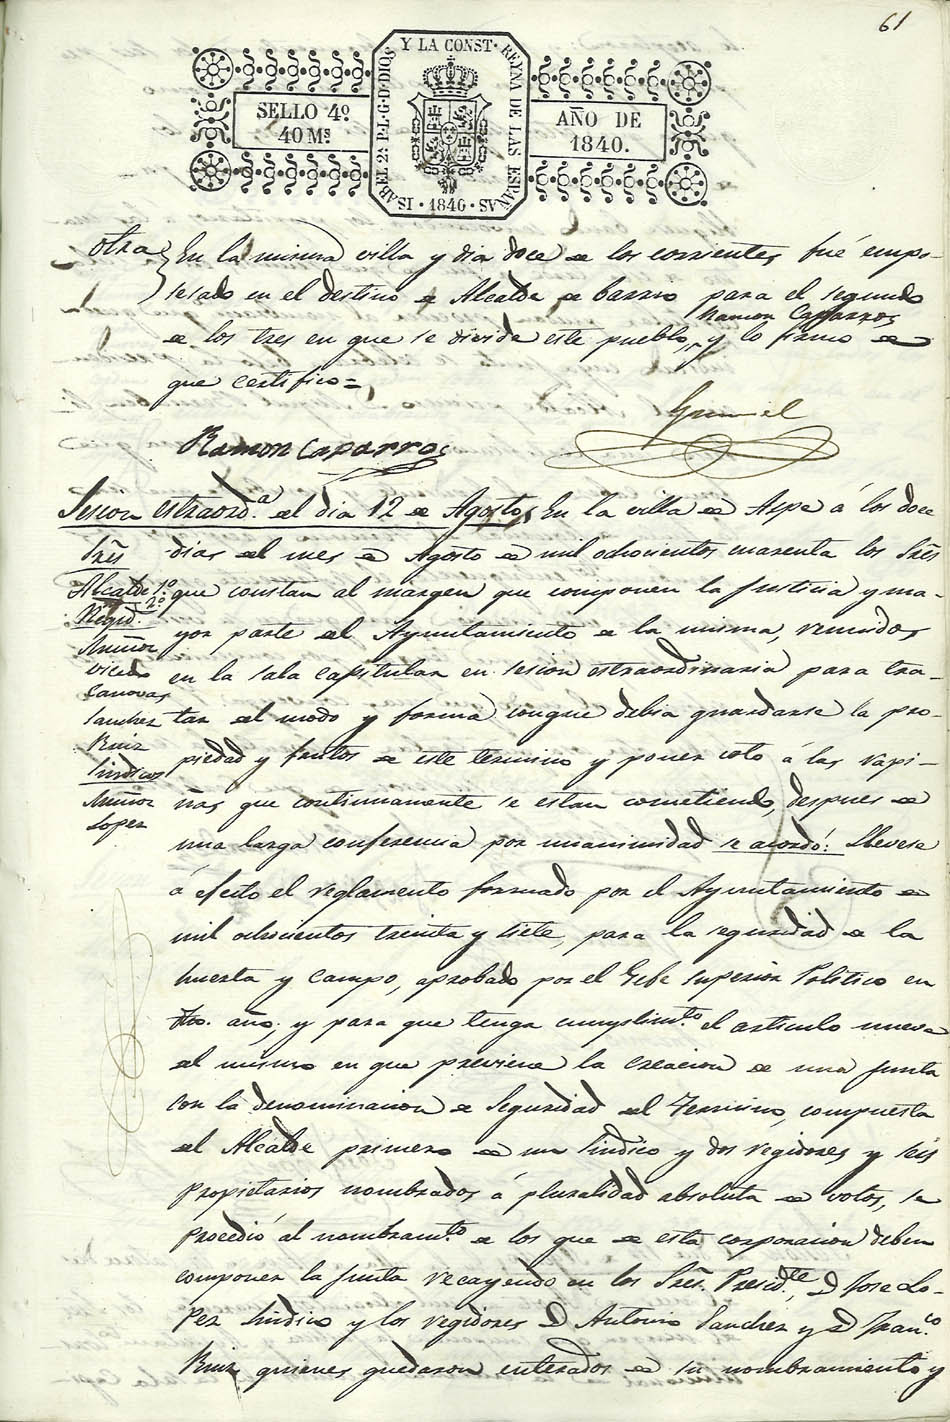 61
SELLO 4º.
40 Mˢ
ISABEL 2ª. P. L. G. D. DIOS Y LA CONST. REYNA DE LAS ESPAÑAS
1840
AÑO DE
1840.
otra
En la misma villa y dia doce de los corrientes fué empo-
sesado en el destino de Alcalde de barrio para el segundo
Ramon Caparros
de los tres en que se divide este pueblo, y lo firmo de
que certifico=
Ramon Caparros
Sesion estraordª. del dia 12 de Agosto, En la villa de Aspe á los doce
dias del mes de Agosto de mil ochocientos cuarenta los Sres
que constan al margen que componen la Justicia y ma-
yor parte del Ayuntamiento de la misma, reunidos
en la sala capitular en sesion estraordinaria para tra-
tar del modo y forma conque debia guardarse la pro-
piedad y frutos de este termino y poner coto á las rapi-
ñas que continuamente se estan cometiendo, despues de
una larga conferencia por unanimidad se acordó: Llevese
á efecto el reglamento formado por el Ayuntamiento de
mil ochocientos treinta y siete, para la seguridad de la
huerta y campo, aprobado por el Gefe superior Politico en
dho. año; y para que tenga cumplimtº. el articulo nueve
del mismo en que previene la creacion de una junta
con la denominacion de Seguridad del Termino, compuesta
del Alcalde primero de un Sindico y dos regidores y seis
propietarios nombrados á pluralidad absoluta de votos, se
procedió al nombramtº. de los que de esta corporacion deben
componer la junta recayendo en los Sres. Presidte, D Jose Lo-
pez Sindico y los regidores D Antonio Sanchez y D Francº.
Ruiz quienes quedaron enterados de su nombramiento y
Sres
Alcalde 1º.
2º
Regid.
Muñoz
Vicedo
Canovas
Sanchez
Ruiz
Sindicos
Muñoz
Lopez